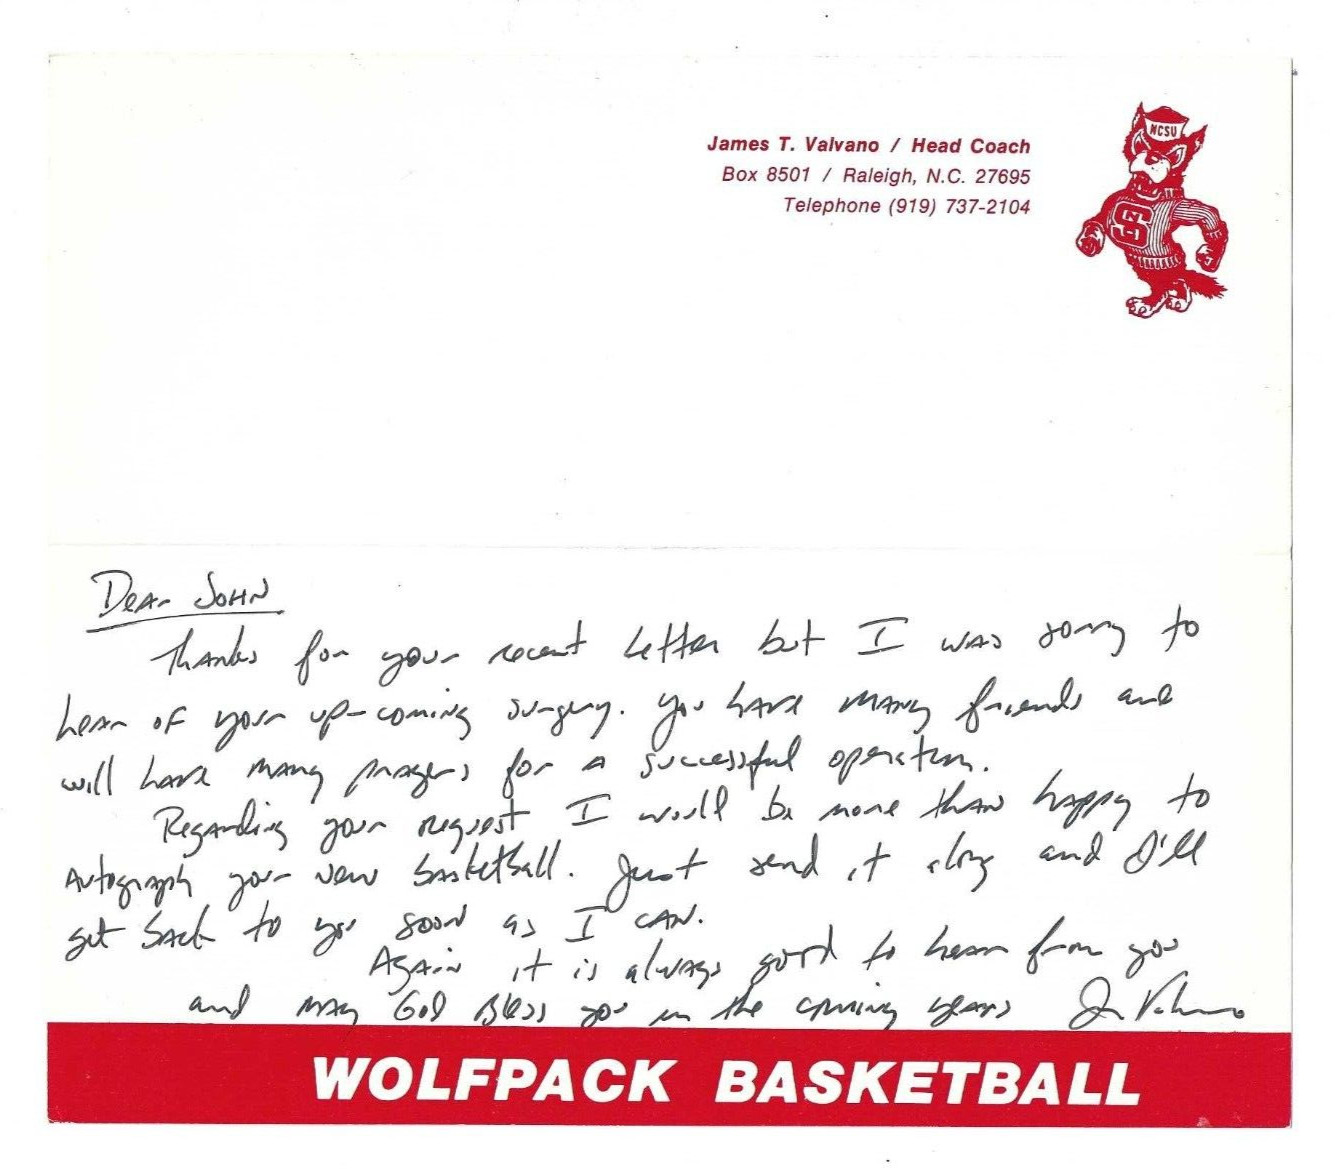 James T. Valvano / Head Coach
Box 8501 / Raleigh, N.C. 27695
Telephone (919) 737-2104
NCSU
NCS
Dear John
Thanks for your recent letter but I was sorry to
hear of your up-coming surgery. You have many friends and
will have many prayers for a successful operation.
Regarding your request I would be more than happy to
autograph your new basketball. Just send it along and I'll
get back to you soon as I can.
Again it is always good to hear from you
and may God Bless you in the coming years Jim Valvano
WOLFPACK BASKETBALL